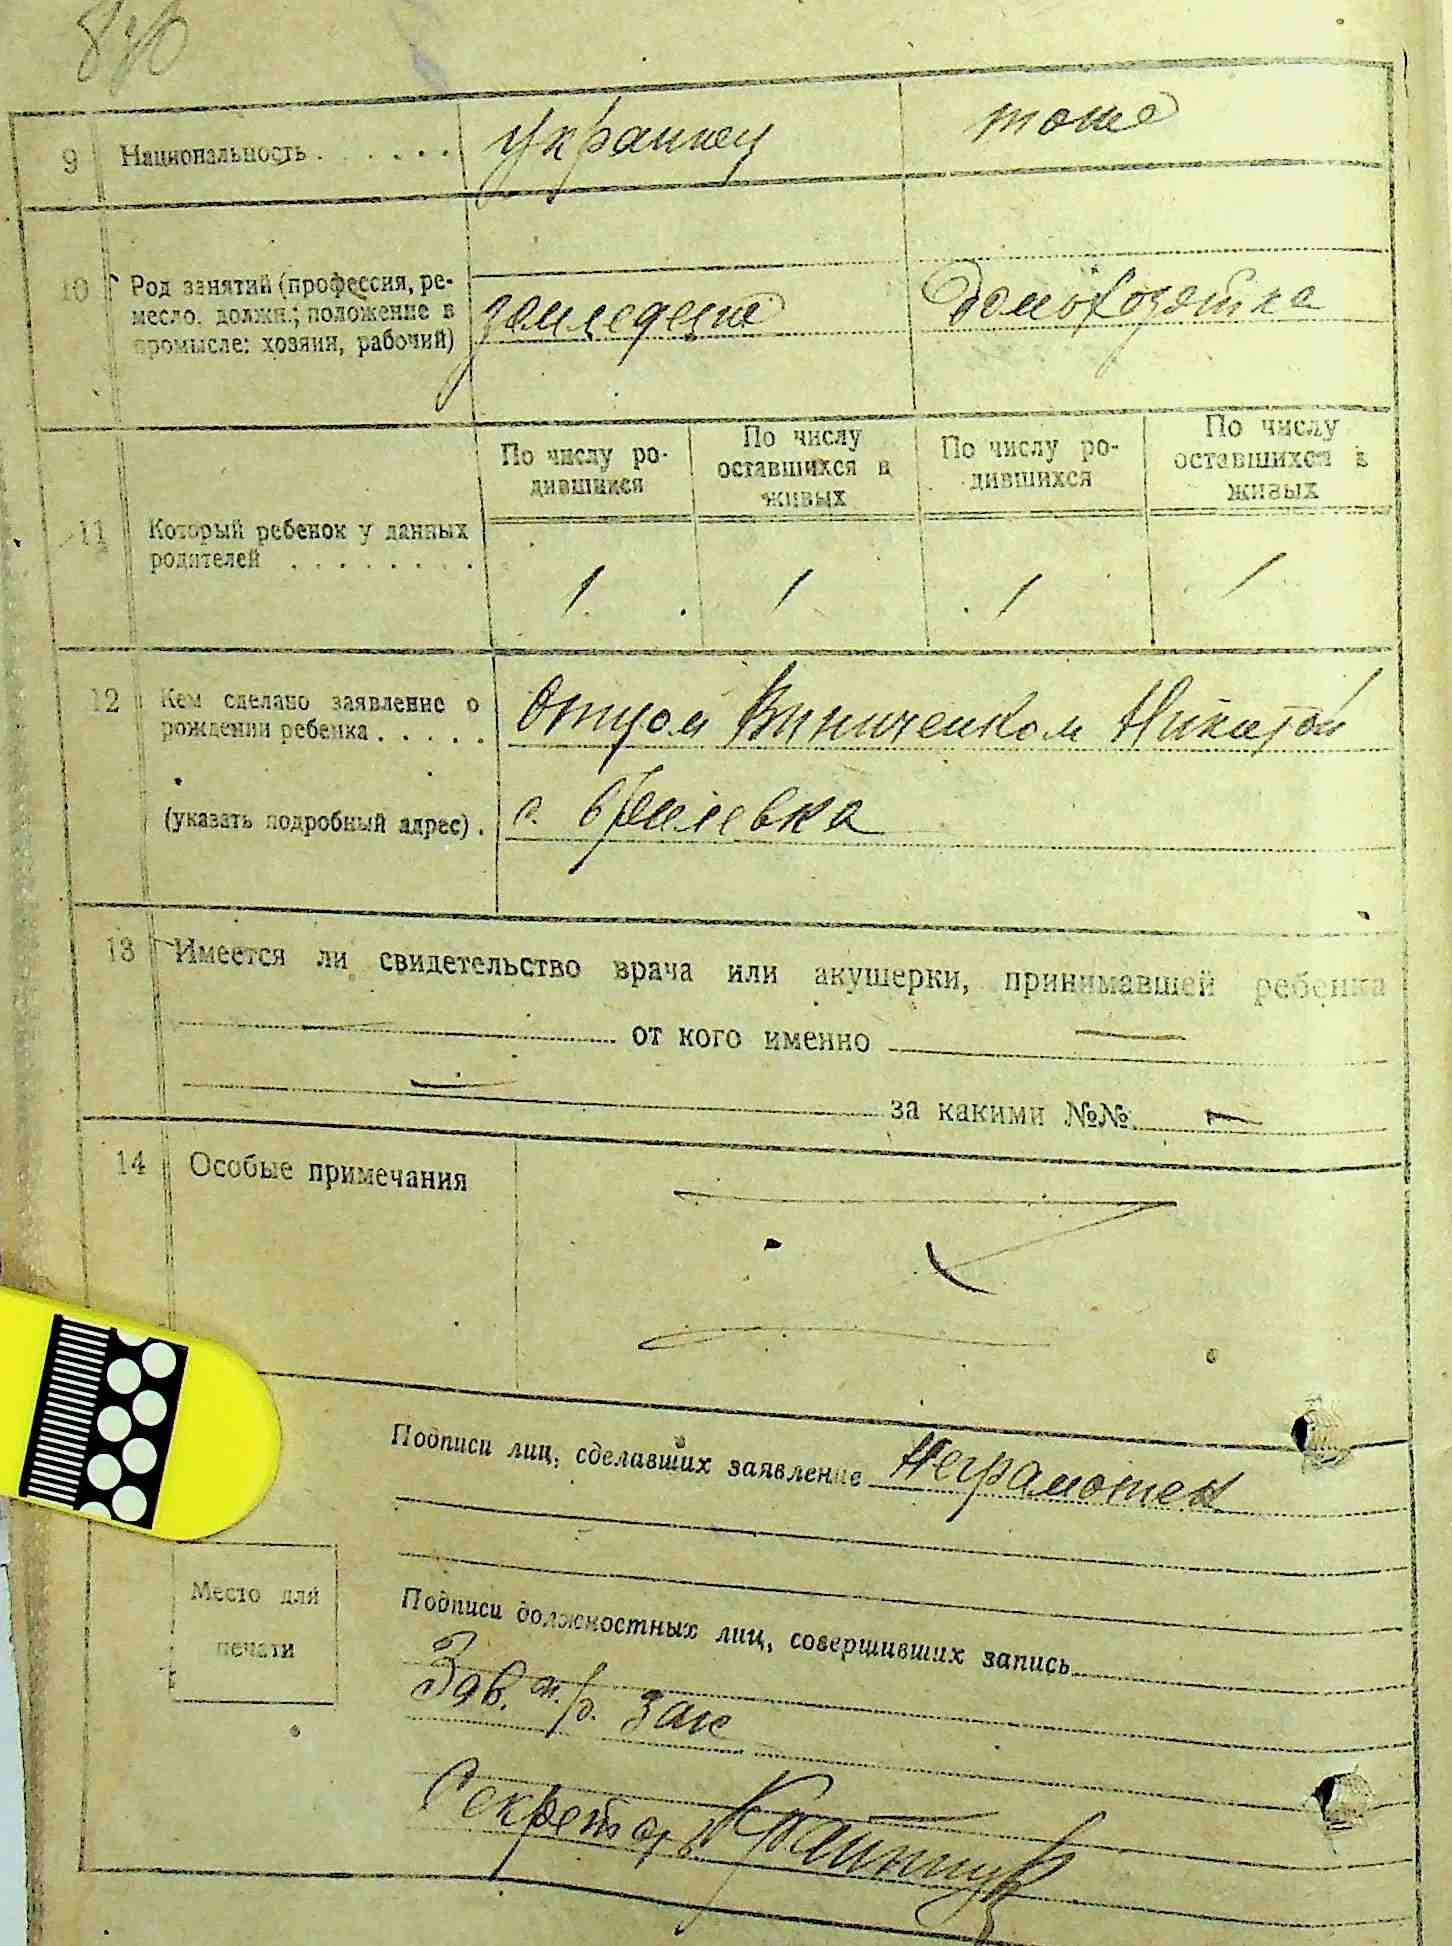 830
9 Национальность . . . . . . украинец тоже
10 Род занятий (профессия, ре-
месло, должн.; положение в
промысле: хозяин, рабочий) земледелие домохозяйка
По числу ро-
дившихся
По числу
оставшихся в
живых
По числу ро-
дившихся
По числу
оставшихся в
живых
11 Который ребенок у данных
родителей . . . . . . . . 1 1 1 1
12 Кем сделано заявление о
рождении ребенка . . . . . Отцом Виниченком Никитой
(указать подробный адрес) . с.
13 Имеется ли свидетельство врача или акушерки, принимавшей ребенка
— от кого именно —
— за какими №№ —
14 Особые примечания
Подписи лиц, сделавших заявление Неграмотен
Место для
печати
Подписи должностных лиц, совершивших запись
Зав. загс
Секретарь